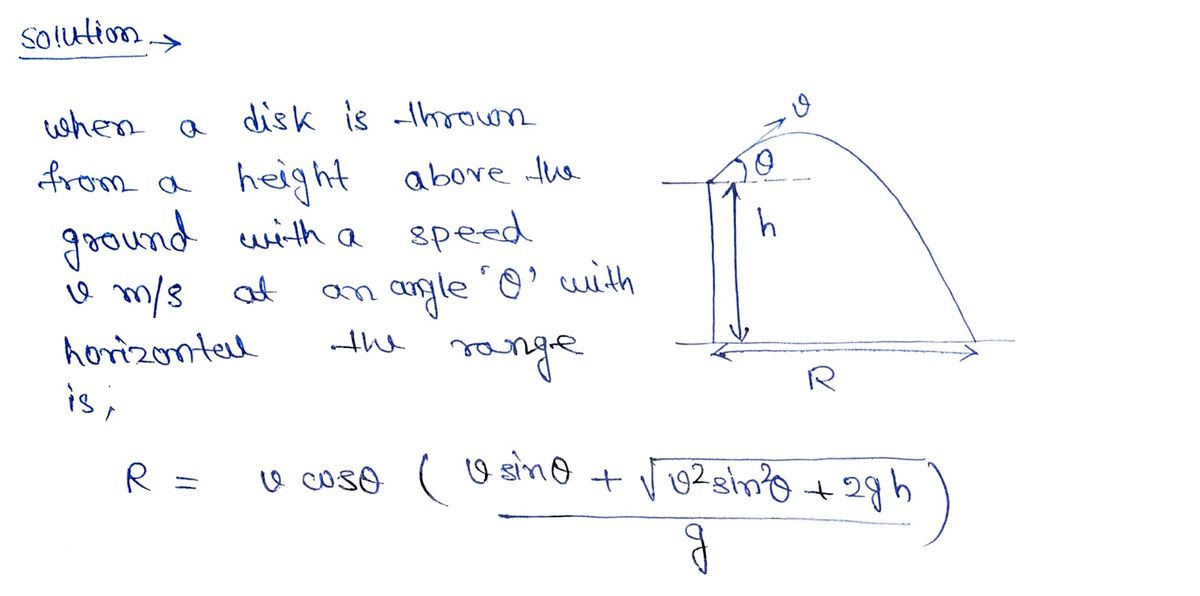 solution →
when a disk is thrown
from a height above the
ground with a speed
v m/s at an angle 'θ' with
horizontal the range
is,
v
θ
h
R
R = v cosθ ( v sinθ + √v²sin²θ + 2gh )
g